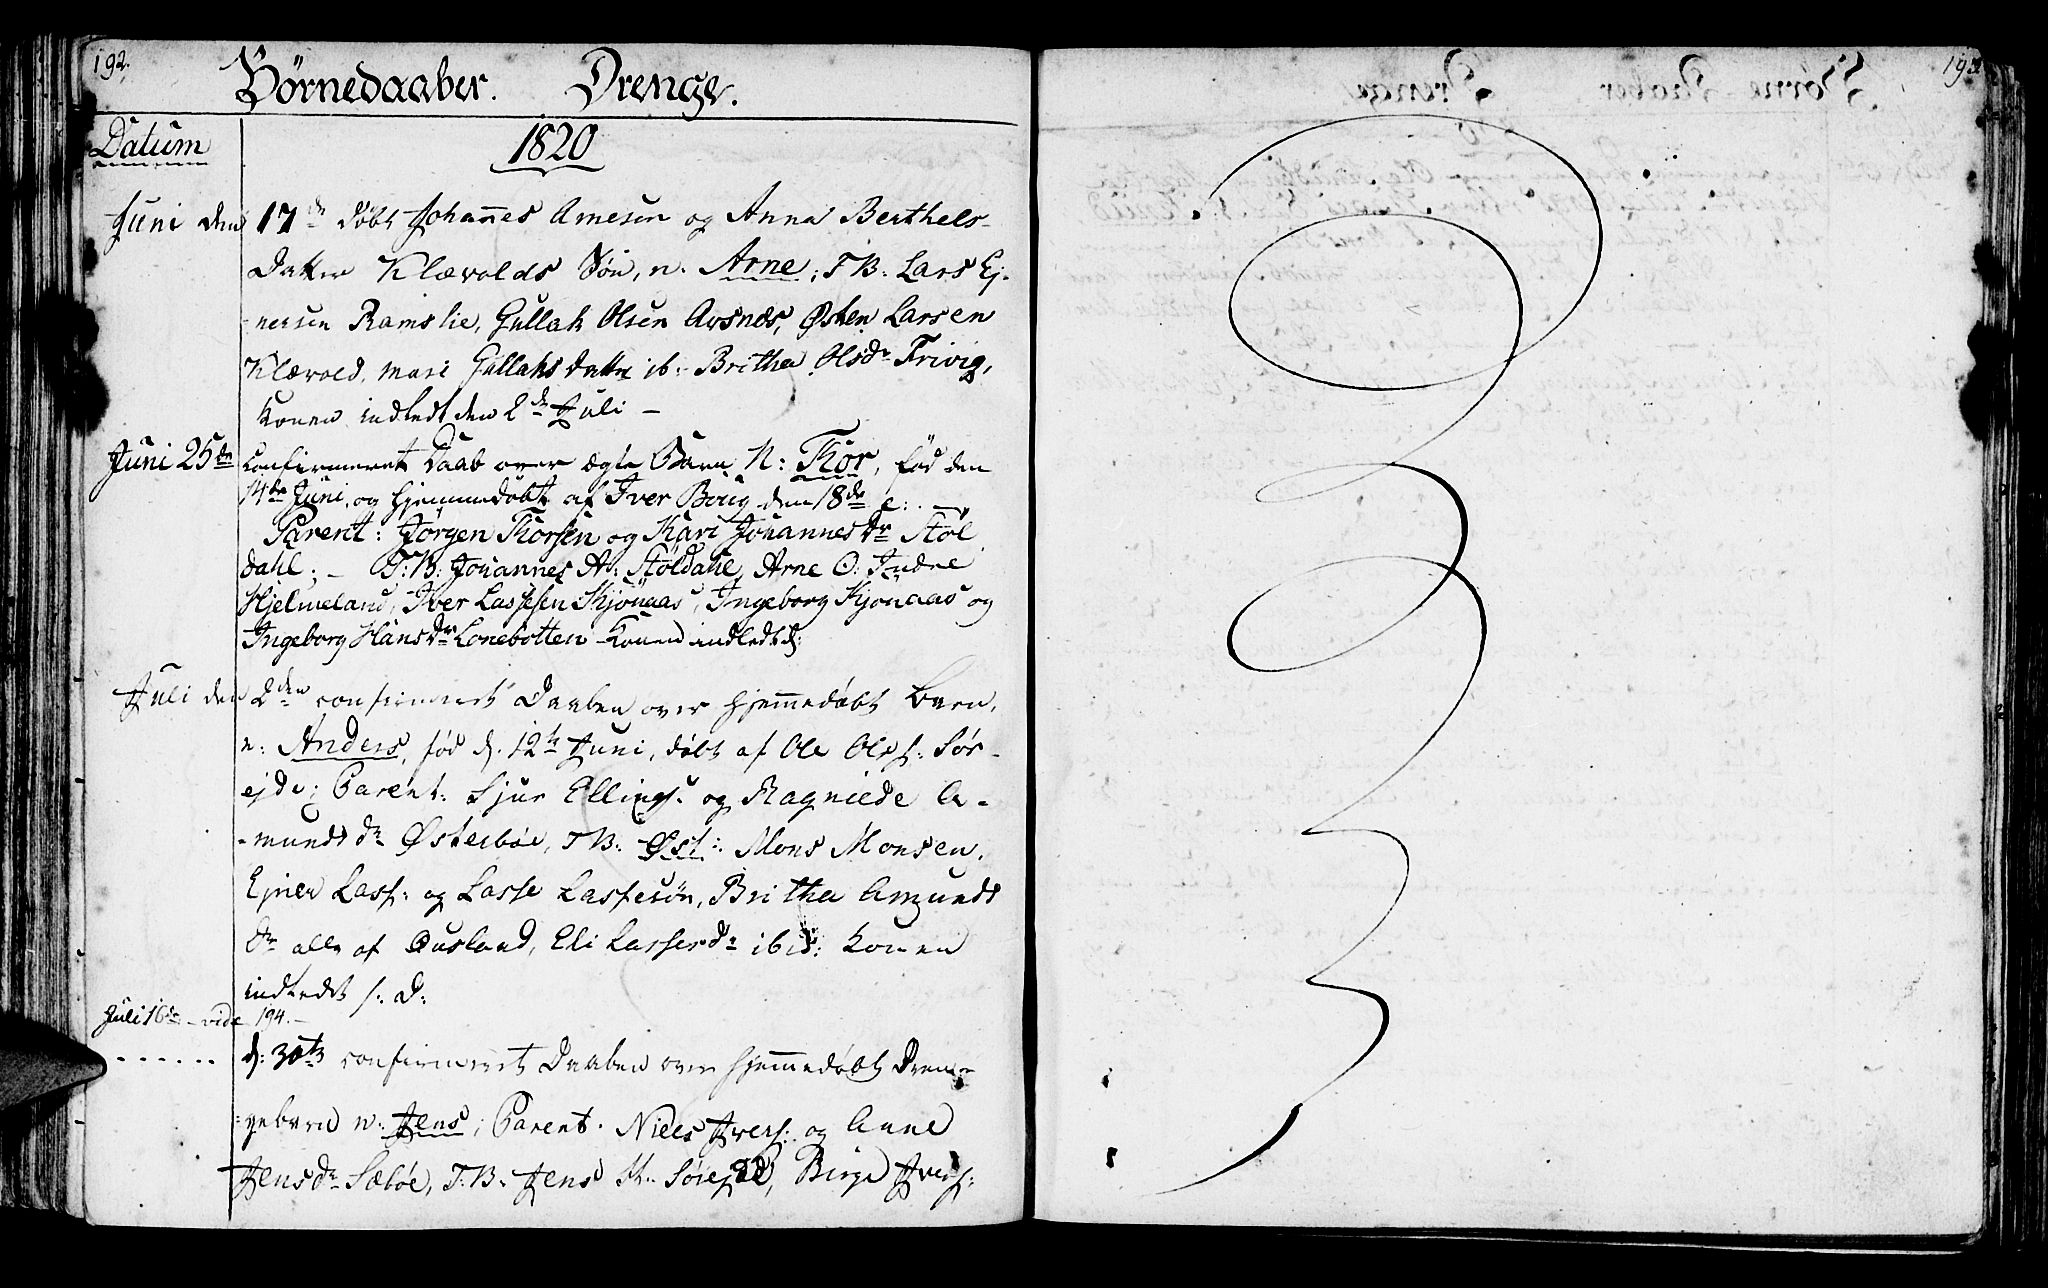 192.
Børnedaaber. Drenge.
Datum
1820
Juni den 17de døbt Johannes Arnesen og Anna Berthels-
Datter Klævolds Søn, n. Arne; T.B: Lars Ej-
nersen Ramslie, Gullak Olsen Avsnæs, Østen Larsen
Klævold, Mari Gullaks datter ib: Britha Olsdr Trivig,
Konen indledt den 2de Juli –
Juni 25de Confirmeret Daab over ægte Barn N: Thor, fød den
14de Juni, og hjemmedøbt af Iver Bøiig den 18de e: –
Parent: Jørgen Thorsen og Kari Johannesdr Støl
dahl; – T:B: Johannes A: Støldahl, Arne O: Indre
Hjelmeland, Iver Lassesen Kjønaas, Ingeborg Kjonaas og
Ingeborg Hansdr Lonebotten – Konen indledt d:
Juli den 2den confirmert Daaben over hjemmedøbt Barn,
n: Anders, fød d. 12te Juni, døbt af Ole Ols: Sør-
ejde; Parent: Sjur Ellings: og Ragnilde A-
-mundsdr Østerbøe, T B: Øst: Mons Monsen,
Ejner Lass: og Lasse Lassesøn, Britha Amunds
dr alle af Ousland, Eli Lassesdr ibid: Konen
indledt s: d:
Juli 16de – vide 194. –
. . . . . . d: 30te confirmeret Daaben over hjemmedøbt Dren-
-gebarn n: Jens; Parent. Niels Ivers: og Anne
Jensdr Sæbøe, T.B: Jens A: Sørejde, Birge Ivers:
193